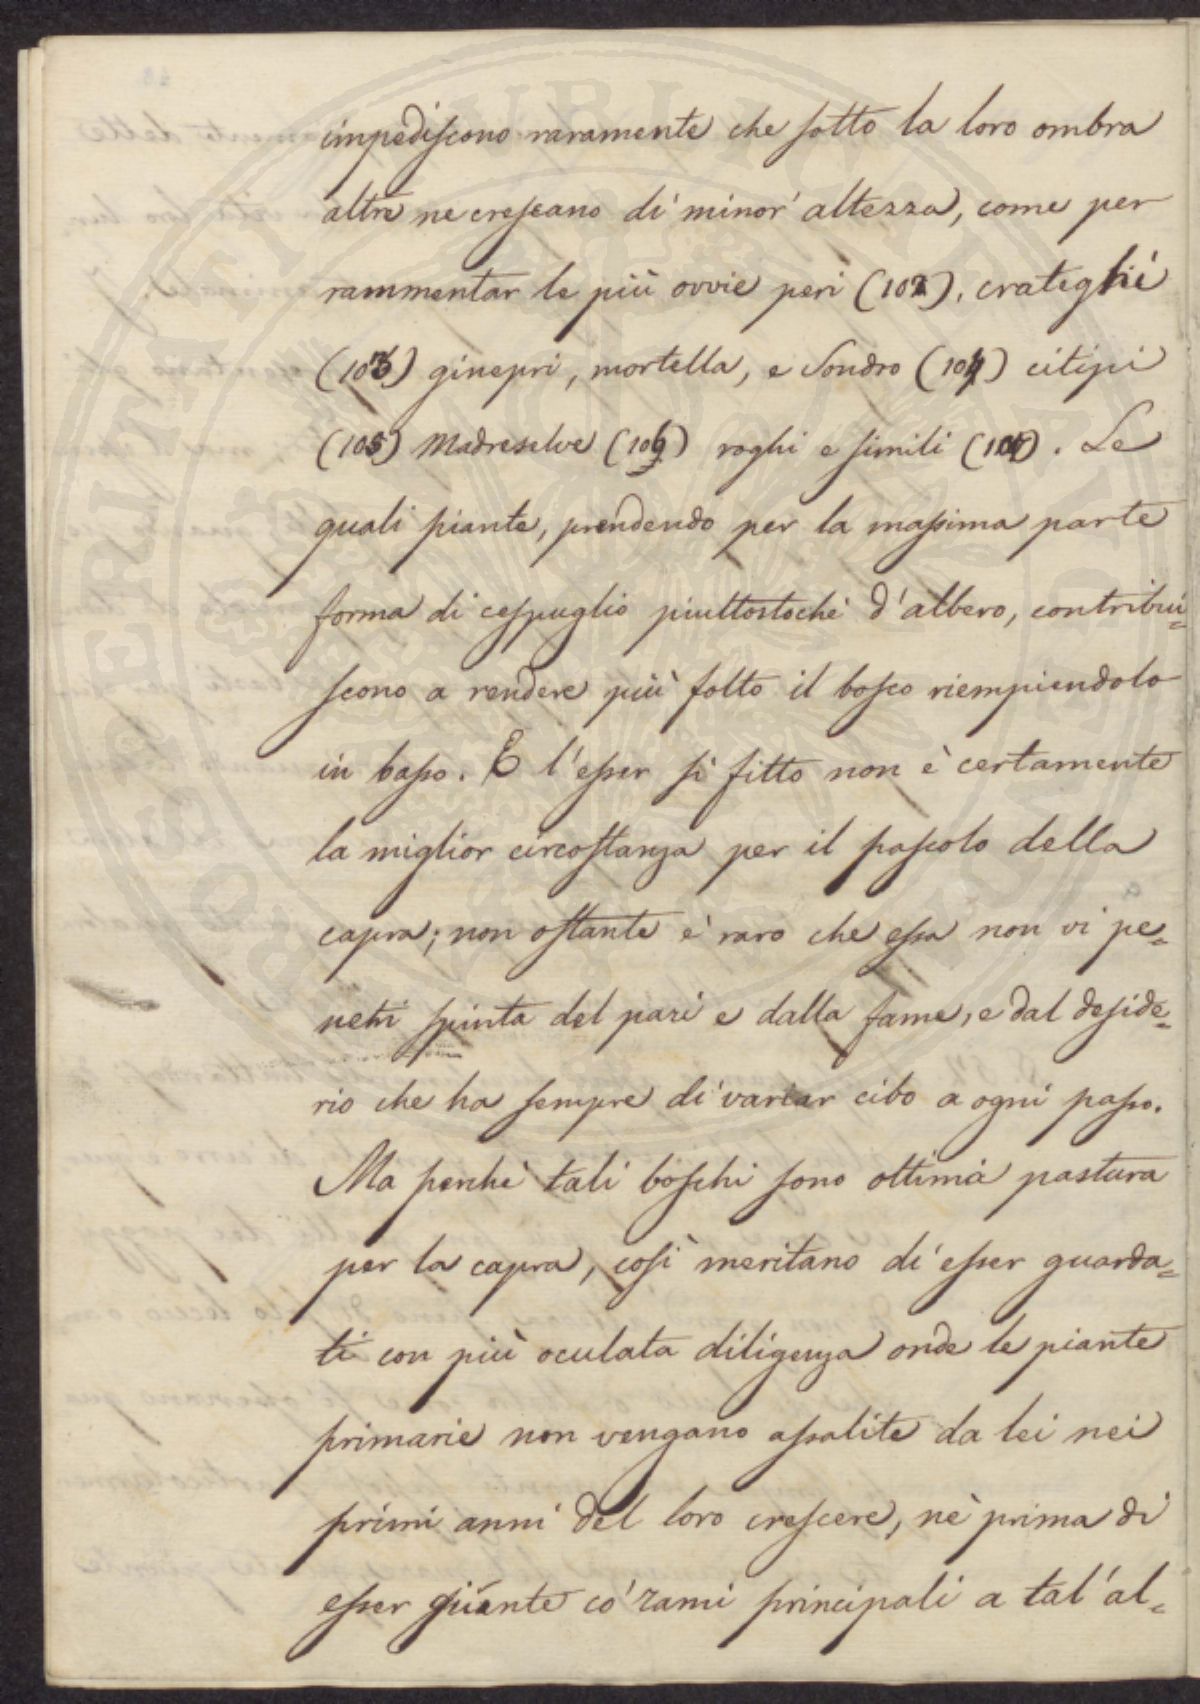 impediscono raramente che sotto la loro ombra
altre ne crescano di minor' altezza, come per
rammentar le più ovvie peri (102), crateghi
(103) ginepri, mortella, e Sondro (104) citisi
(105) Madreselve (106) roghi e simili (107). Le
quali piante, prendendo per la massima parte
forma di cespuglio piuttostochè d'albero, contribui=
scono a rendere più folto il bosco riempiendolo
in basso. E l'esser sì fitto non è certamente
la miglior circostanza per il pascolo della
capra; non ostante è raro che essa non vi pe=
netri spinta del pari e dalla fame, e dal deside=
rio che ha sempre di variar cibo a ogni passo.
Ma perchè tali boschi sono ottima pastura
per la capra, così meritano di esser guarda=
ti con più oculata diligenza onde le piante
primarie non vengano assalite da lei nei
primi anni del loro crescere, nè prima di
esser giunte co' rami principali a tal' al=